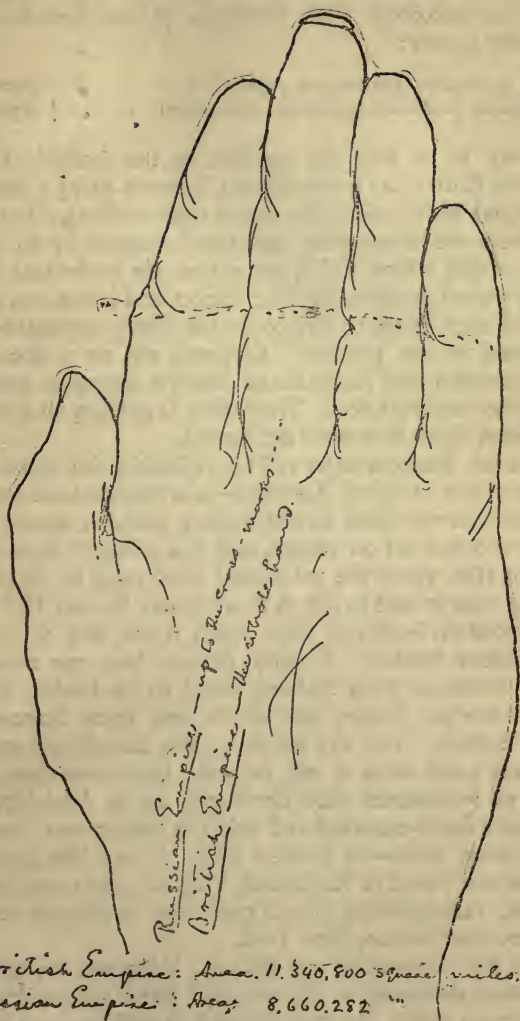 Russian Empire — up to the cross-marks ....
British Empire — The whole hand.
British Empire: Area. 11.340,800 square miles.
Russian Empire: Area, 8,660,282 "